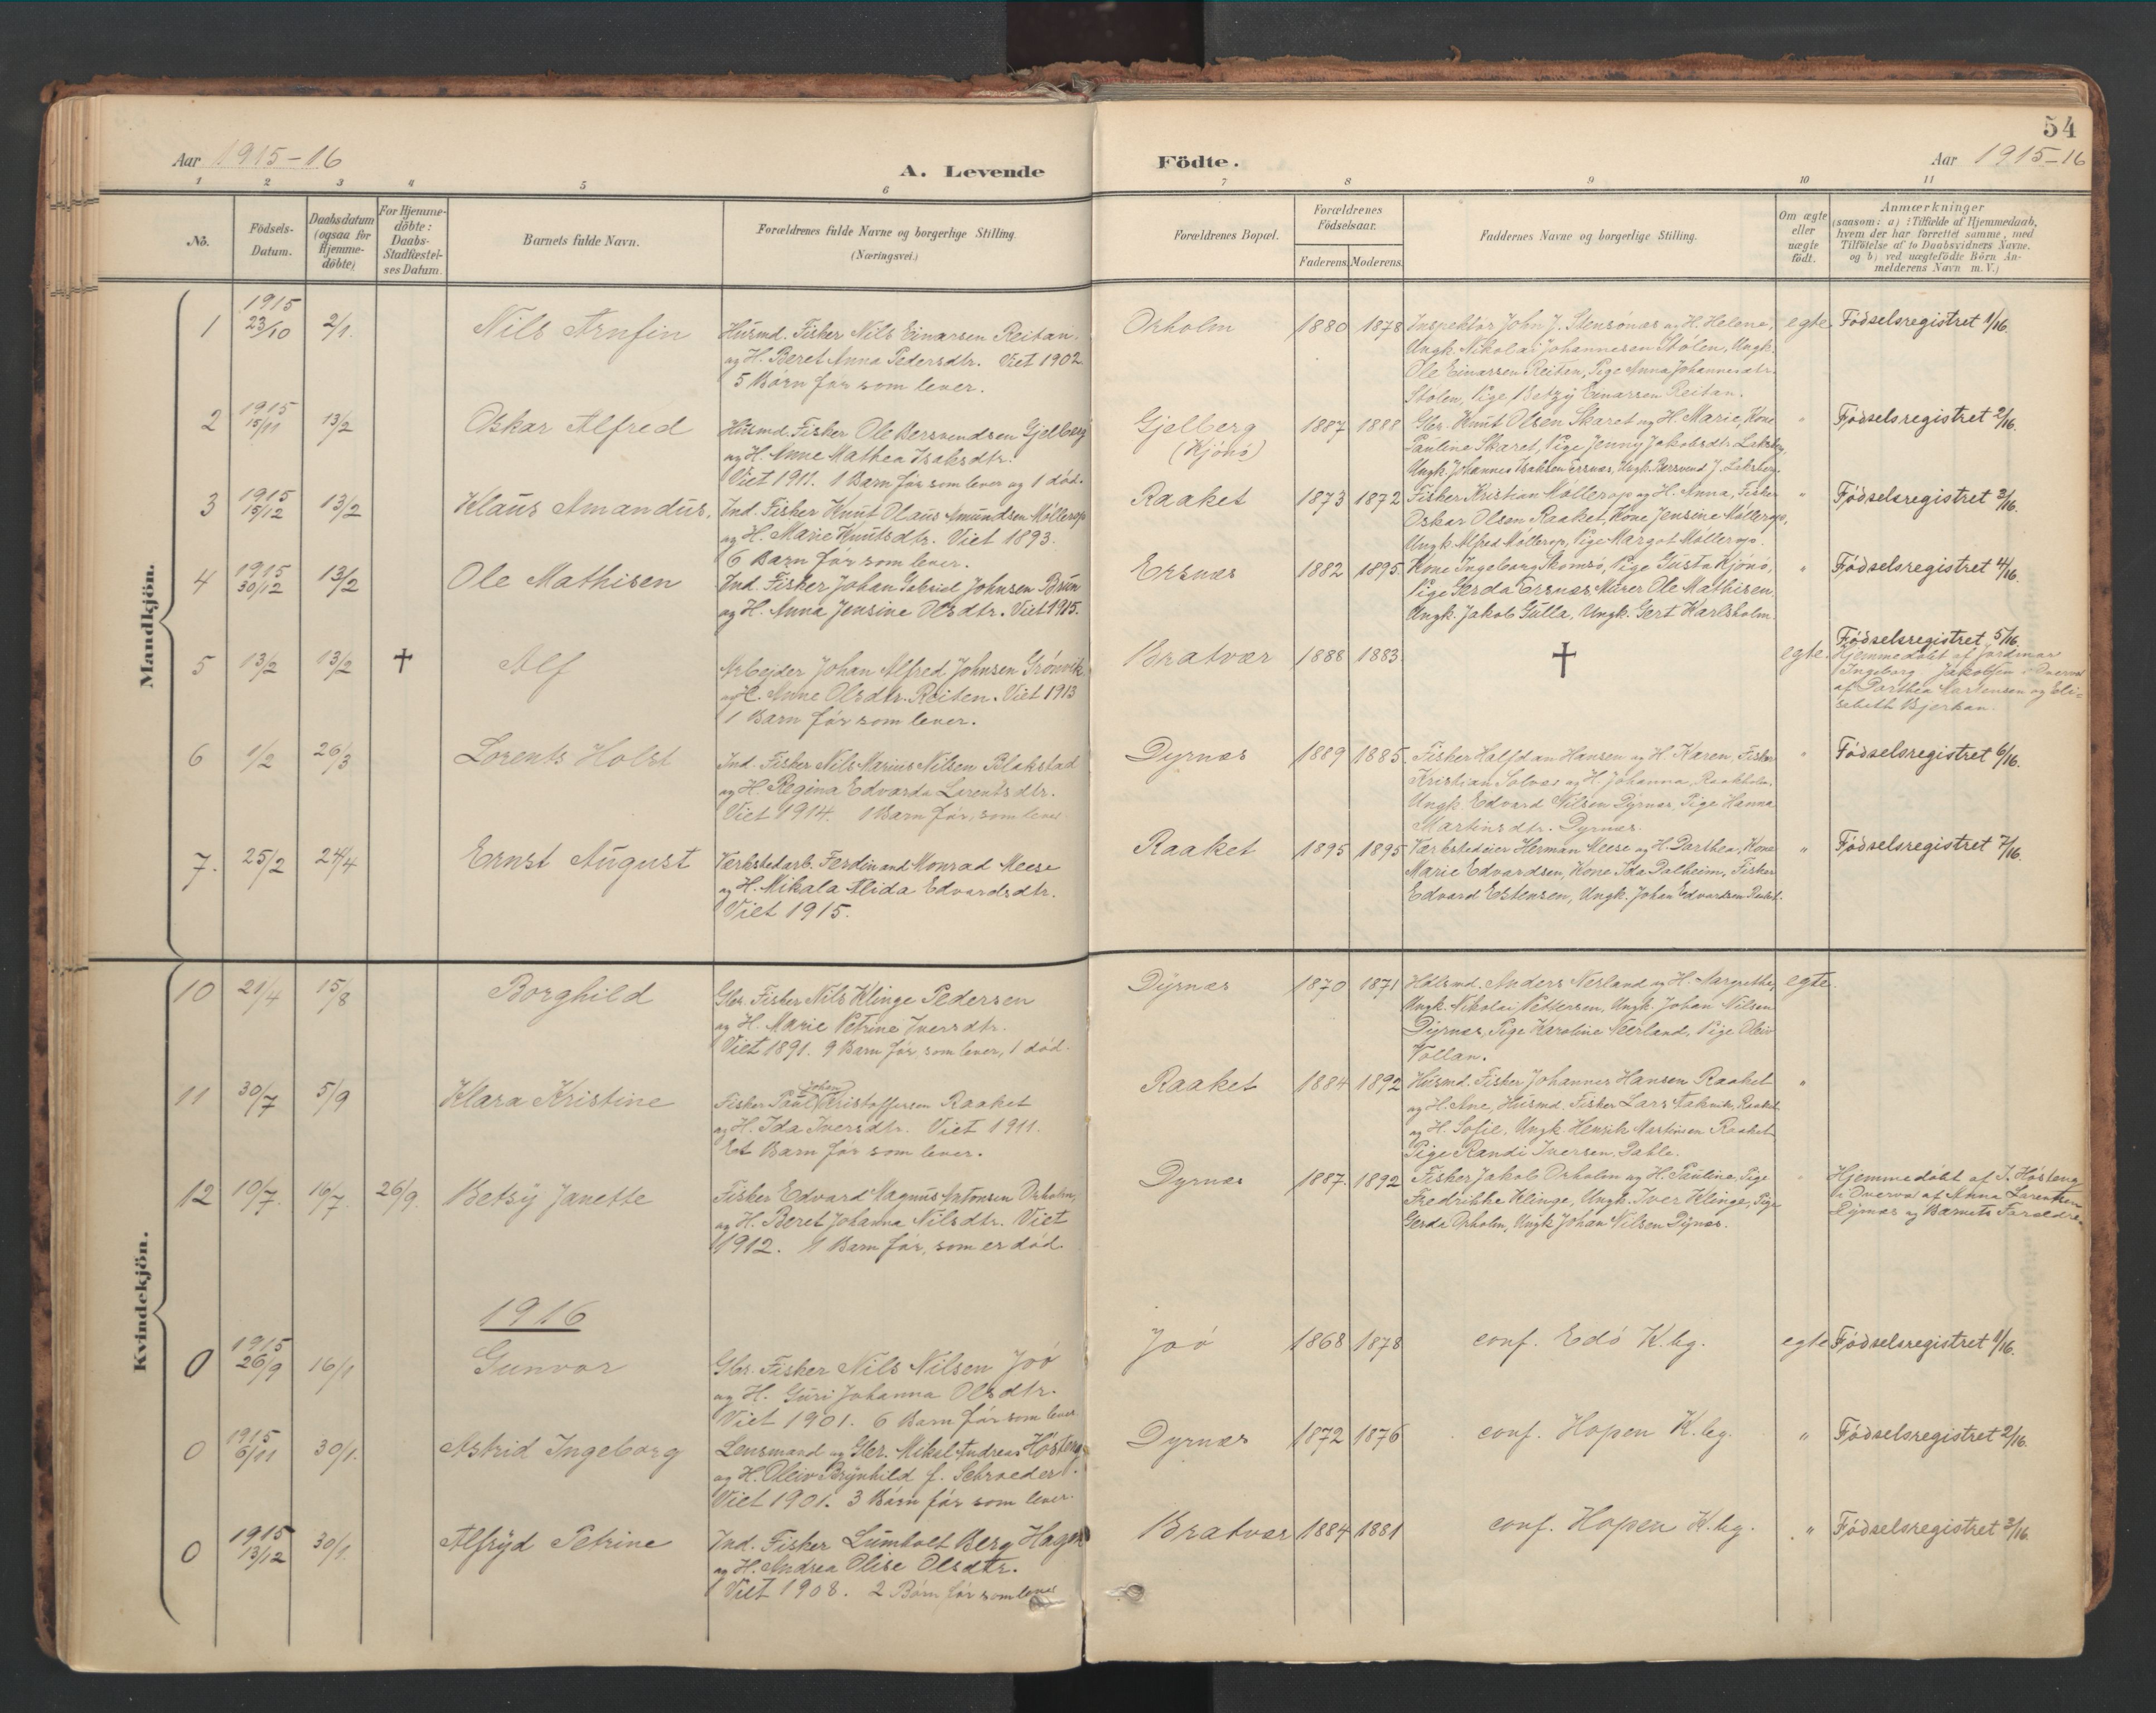 54
Aar 1915-16
A. Levende Födte.
Aar 1915-16
1 2 3 4 5 6 7 8 9 10 11
No.
Födsels-Datum.
Daabsdatum (ogsaa for Hjemme-döbte)
For Hjemme-döbte: Daabs-Stadfæstel-ses Datum.
Barnets fulde Navn.
Forældrenes fulde Navne og borgerlige Stilling.
(Næringsvei.)
Forældrenes Bopæl.
Forældrenes Födselsaar.
Faderens. Moderens.
Faddernes Navne og borgerlige Stilling.
Om ægte eller uægte födt.
Anmærkninger
(sansom: a) i Tilfælde af Hjemmedaab,
hvem der har forrettet samme, med
Tilföielse af to Daabsvidners Navne.
og b) ved uægtefödte Börn An-
melderens Navn m. V.)
Mandkjön.
1 1915 23/10 2/1. Nils Arnfin
Husmd. Fisker Nils Einarsen Reitan
og H. Beret Anna Pedersdtr. Viet 1902
5 Börn för som lever.
Orholm 1880 1878
Inspektör John J. Stensönas og H. Helene,
Ungk. Nikolai Johannesen Stölen, Ungk.
Ole Einarsen Reiten, Pige Anna Johannesdtr.
Stölen, Pige Betzy Einarsen Reitan.
egte. Födselsregistret 1/16.
2 1915 15/11 13/2 Oskar Alfred
Husmd. Fisker Ole Bersvendsen Gjelberg
og H. Anne Mathea Isaksdtr.
Viet 1911. 1 Barn för som lever og 1 död.
Gjelberg (Kjönö) 1887 1888
Gbr. Knut Olsen Skaret og H. Marie, Kone
Pauline Skaret, Pige Jenny Jakobsdtr. Leksberg
Ungk. Johannes Isaksen Ersnæs, Ungk. Bersvend J. Leksberg.
" Födselsregistret 2/16.
3 1915 15/12 13/2 Klaus Amandus.
Ind. Fisker Knut Olaus Amundsen Möllerop
og H. Marie Knutsdtr. Viet 1893.
6 Barn för som lever.
Raaket 1873 1872
Fisker Kristian Möllerop og H. Anna, Fisker
Oskar Olsen Raaket, Kone Jensine Möllerop,
Ungk. Alfred Möllerop, Pige Margot Möllerop.
" Födselsregistret 3/16.
4 1915 30/12 13/2 Ole Mathisen
Ind. Fisker Johan Gabriel Johnsen Brun
og H. Anna Jensine Olsdtr. Viet 1915.
Ersnæs 1882 1895.
Kone Ingeborg Skomsö, Pige Gusta Kjönö,
Pige Gerda Ersnæs, Murer Ole Mathisen
Ungk. Jakob Gulla, Ungk. Gert Karlsholm.
" Födselsregistret 4/16.
5 13/2 13/2 † Alf
Arbejder Johan Alfred Johnsen Grönvik
og H. Anne Olsdtr. Reiten. Viet 1913
1 Barn för som lever.
Bratvær 1888 1883.
†
egte. Födselsregistret 5/16
Hjemmedöbt af Jordmor
Ingeborg Jakobsen i Overvær
af Dorthea Martensen og Eli-
sebeth Bjerkan.
6 1/2 26/3 Lorents Holst
Ind. Fisker Nils Marius Nilsen Blakstad
og H. Regina Edvarda Lorentsdtr.
Viet 1914. 1 Barn för, som lever
Dyrnæs 1889 1885
Fisker Halfdan Hansen og H. Karen, Fisker
Kristian Solvær og H. Johanna,
Ungk. Edvard Nilsen Dyrnæs, Pige Hanna
Martinsdtr. Dyrnæs.
" Födselsregistret 6/16.
7. 25/2 24/4 Ernst August
Verkstedarb. Ferdinand Konrad Meese
og H. Mikala Alida Edvardsdtr.
Viet 1915.
Raaket 1895 1895
Værkstedeier Herman Meese og H. Dorthea, Kone
Marie Edvardsen, Kone Ida Dalheim, Fisker
Edvard Estensen, Ungk. Johan Edvardsen Raaket.
" Födselsregistret 7/16.
Kvindekjön.
10 21/4 15/8 Borghild
Gbr. Fisker Nils Klinge Pedersen
og H. Marie Petrine Iversdtr.
Viet 1891. 9 Barn för, som lever, 1 död.
Dyrnæs 1870 1871
Hdlsmd. Anders Nerland og H. Margrethe,
Ungk. Nikolai Pettersen, Ungk. Johan Nilsen
Dyrnæs, Pige Karoline Neerland, Pige Oleiv
Vollan.
egte.
11 30/7 5/9 Klara Kristine
Fisker Paul Johan Kristoffersen Raaket
og H. Ida Iversdtr. Viet 1911.
Et Barn för som lever.
Raaket 1884 1892
Husmd. Fisker Johannes Hansen Raaket
og H. Ane, Husmd. Fisker Lars Raket
og H. Sofie, Ungk. Henrik Martinsen Raaket
Pige Randi Iversen.
"
12 10/7. 16/7. 26/9. Betsy Janette
Fisker Edvard Magnus Antonsen Orholm,
og H. Beret Johanna Nilsdtr. Viet
1912. 1 Barn för, som er död.
Dyrnæs 1887. 1892
Fisker Jakob Orholm og H. Pauline, Pige
Fredrikke Klinge, Ungk. Iver Klinge, Pige
Gerda Orholm, Ungk. Johan Nilsen Dyrnæs.
" Hjemmedöbt af J. Hösteng
i Overvær af Anna Larentsen
Dyrnæs og Barnets Forældre.
1916
0 1915 26/9 16/1 Gunvor
Gbr. Fisker Nils Nilsen Joö
og H. Guri Johanna Olsdtr.
Viet 1901. 6 Barn för som lever
Joö 1868 1878
conf. Edö K.bg.
egte Födselsregistret 1/16.
0 1915 6/11 30/1. Astrid Ingeborg
Lensmand og Gbr. Mikal Andreas Hösteng
og H. Oleiv Brynhild f. Schrøder.
Viet 1901. 3 Börn för som lever.
Dyrnæs 1872 1876
conf. Hopen K.bg.
" Födselsregistret 2/16.
0 1915 13/12 30/1. Alfryd Petrine
Ind. Fisker Lumholt Berg Hagen
og H. Andrea Olise Olsdtr.
Viet 1908. 2 Börn för som lever
Bratvær 1884 1881
conf. Hopen K.bg.
" Födselsregistret 3/16.